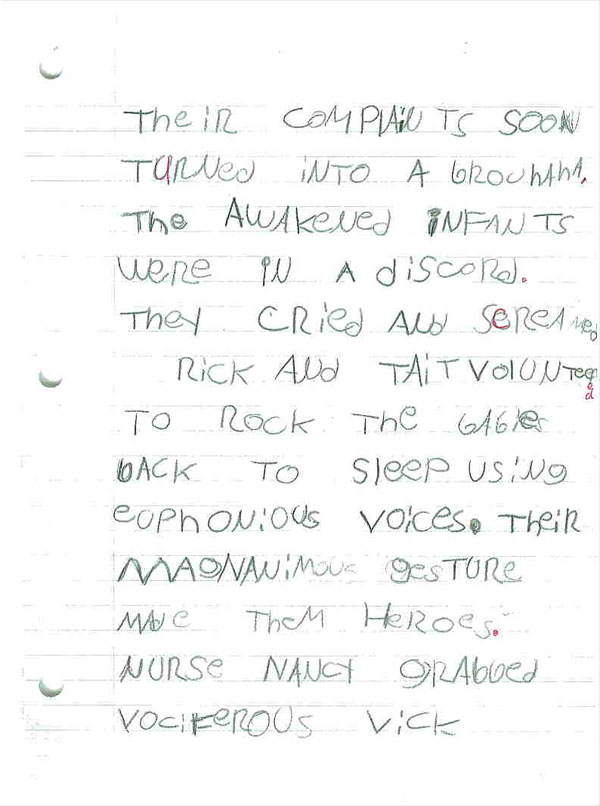 TheiR COMPlAiNTS SOON
TURNed iNTO A bROUhAhA.
The AWAKeNed iNFANTS
WeRe IN A diSCORd.
They CRied ANd SCReAMed
RiCK ANd TAiT VOlUNTeeRed
TO ROCK The bAbies
bACK TO SleeP USiNg
eUPhONiOUS VOiCeS. TheiR
MAgNANiMOUS gesTURe
MAde TheM HeROes.
NURSe NANCy gRAbbed
VOCiFeROUS ViCK